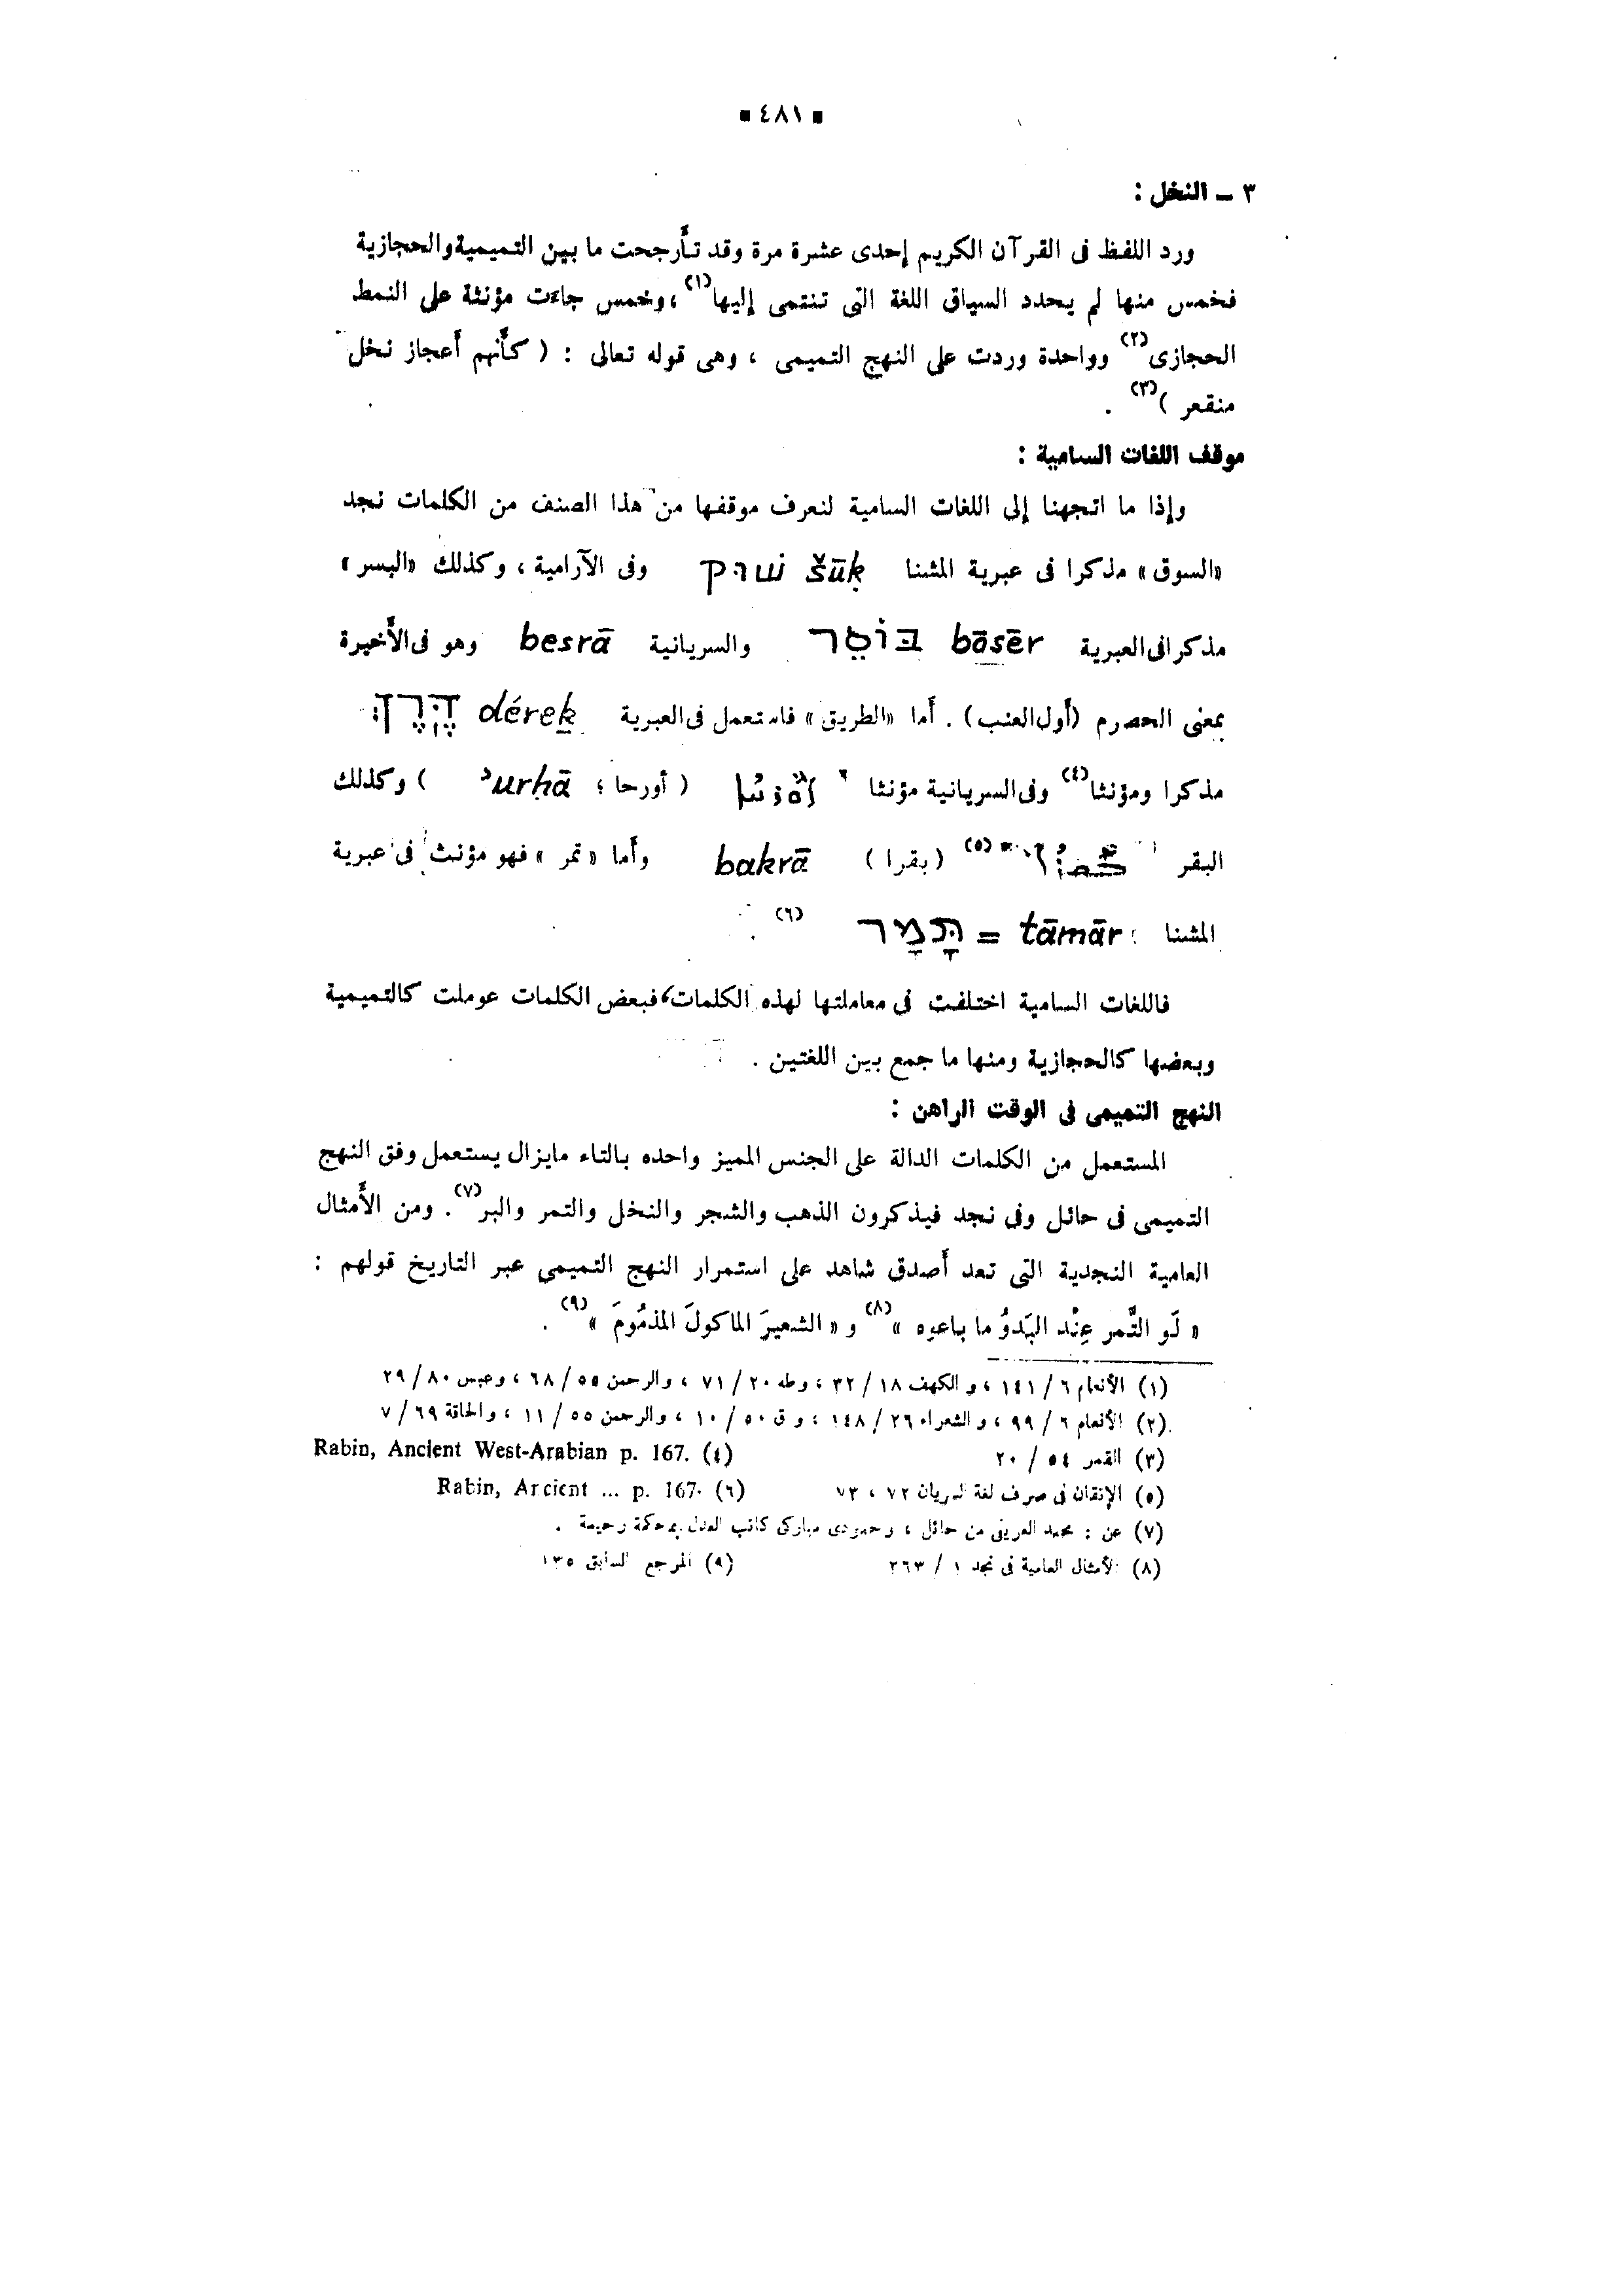 ٤٨١
٣ – النخل :
ورد اللفظ فى القرآن الكريم إحدى عشرة مرة وقد تأرجحت ما بين التميمية والحجازية
فخمس منها لم يحدد السياق اللغة التى تنتمى إليها(١) ، وخمس جاءت مؤنثة على النمط
الحجازى(٢) وواحدة وردت على النهج التميمى ، وهى قوله تعالى : ( كأنهم أعجاز نخل
منقعر )(٣) .
موقف اللغات السامية :
وإذا ما اتجهنا إلى اللغات السامية لنعرف موقفها من هذا الصنف من الكلمات نجد
«السوق» مذكرا فى عبرية المشنا šūḳ שוק وفى الآرامية ، وكذلك «البسر»
مذكرا فى العبرية bōsēr בּוֹסֵר والسريانية besrā وهو فى الأخيرة
بمعنى الحصرم (أول العنب) . أما «الطريق» فاستعمل فى العبرية déreḵ דֶּרֶךְ
مذكرا ومؤنثا(٤) وفى السريانية مؤنثا ܐܘܪܚܐ ( أورحا ؛ ʾurḥā ) وكذلك
البقر (٥) (بقرا) bakrā وأما «تمر» فهو مؤنث فى عبرية
المشنا : tāmār = תָּמָר (٦) .
فاللغات السامية اختلفت فى معاملتها لهذه الكلمات ، فبعض الكلمات عوملت كالتميمية
وبعضها كالحجازية ومنها ما جمع بين اللغتين .
النهج التميمى فى الوقت الراهن :
المستعمل من الكلمات الدالة على الجنس المميز واحده بالتاء مايزال يستعمل وفق النهج
التميمى فى حائل وفى نجد فيذكرون الذهب والشجر والنخل والتمر والبر(٧) . ومن الأمثال
العامية النجدية التى تعد أصدق شاهد على استمرار النهج التميمى عبر التاريخ قولهم :
« لَو التَّمر عِنْد البَدوُ ما باعوه »(٨) و « الشعيرَ الماكولَ المذمُومَ »(٩) .
(١) الأنعام ٦ / ١٤١ ، و الكهف ١٨ / ٣٢ ، وطه ٢٠ / ٧١ ، والرحمن ٥٥ / ٦٨ ، وعبس ٨٠ / ٢٩
(٢) الأنعام ٦ / ٩٩ ، و الشعراء ٢٦ / ١٤٨ ، و ق ٥٠ / ١٠ ، والرحمن ٥٥ / ١١ ، والحاقة ٦٩ / ٧
(٣) القمر ٥٤ / ٢٠ (٤) Rabin, Ancient West-Arabian p. 167.
(٥) الإتقان فى صرف لغة السريان ٧٢ ، ٧٣ (٦) Rabin, Ancient ... p. 167.
(٧) عن : محمد العرينى من حائل ، وحمودى مباركى كاتب العدل بمحكمة رحيمة .
(٨) الأمثال العامية فى نجد ١ / ٢٦٣ (٩) المرجع السابق ١٣٥